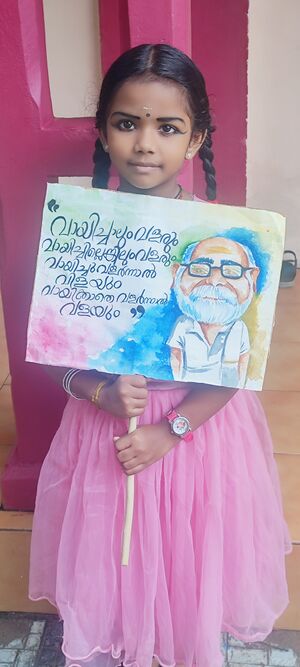 "വായിച്ചാലും വളരും
വായിച്ചില്ലെങ്കിലും വളരും
വായിച്ചു വളർന്നാൽ
വിളയും
വായിക്കാതെ വളർന്നാൽ
വളയും"